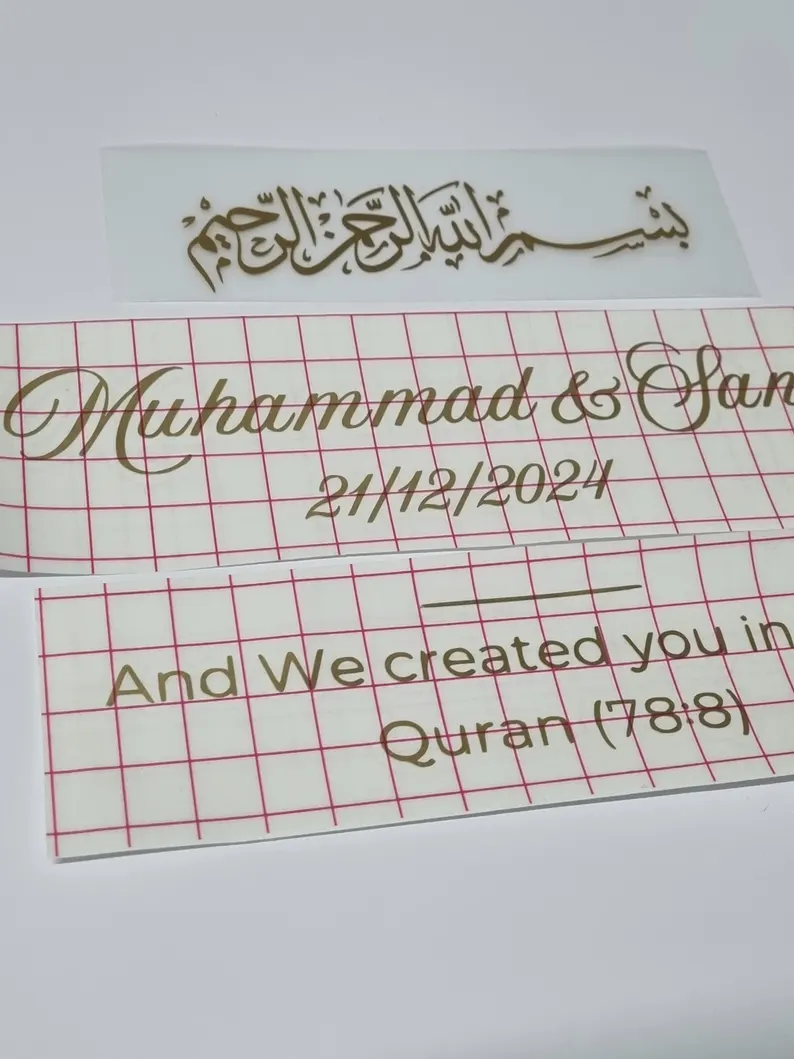 بسم الله الرحمن الرحيم
Muhammad & San
21/12/2024
And We created you in
Quran (78:8)